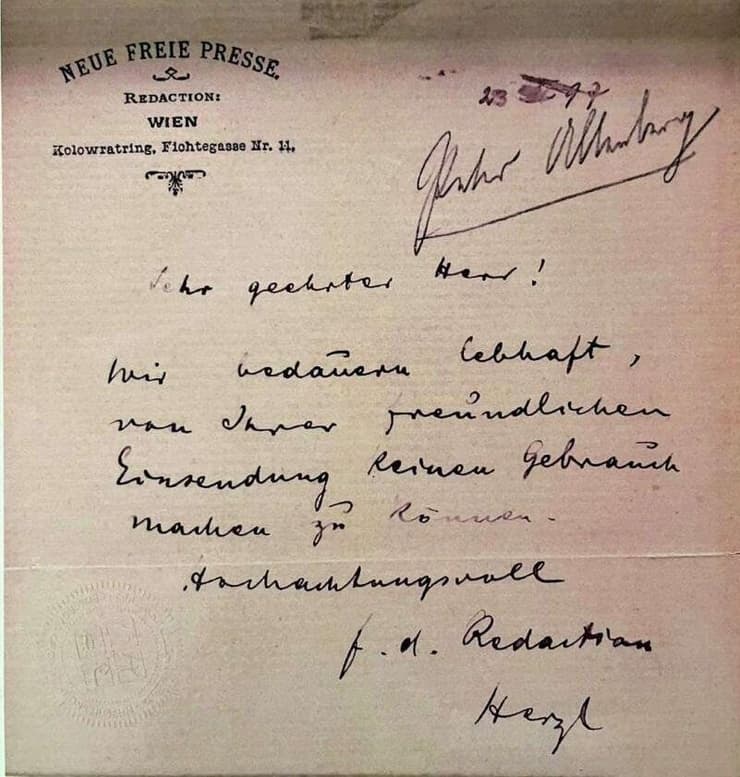 NEUE FREIE PRESSE.
REDACTION:
WIEN
Kolowratring, Fichtegasse Nr. 11.
23 97
Peter Altenberg
Sehr geehrter Herr!
Wir bedauern lebhaft,
von Ihrer freundlichen
Einsendung keinen Gebrauch
machen zu können.
Hochachtungsvoll
f. d. Redaction
Herzl